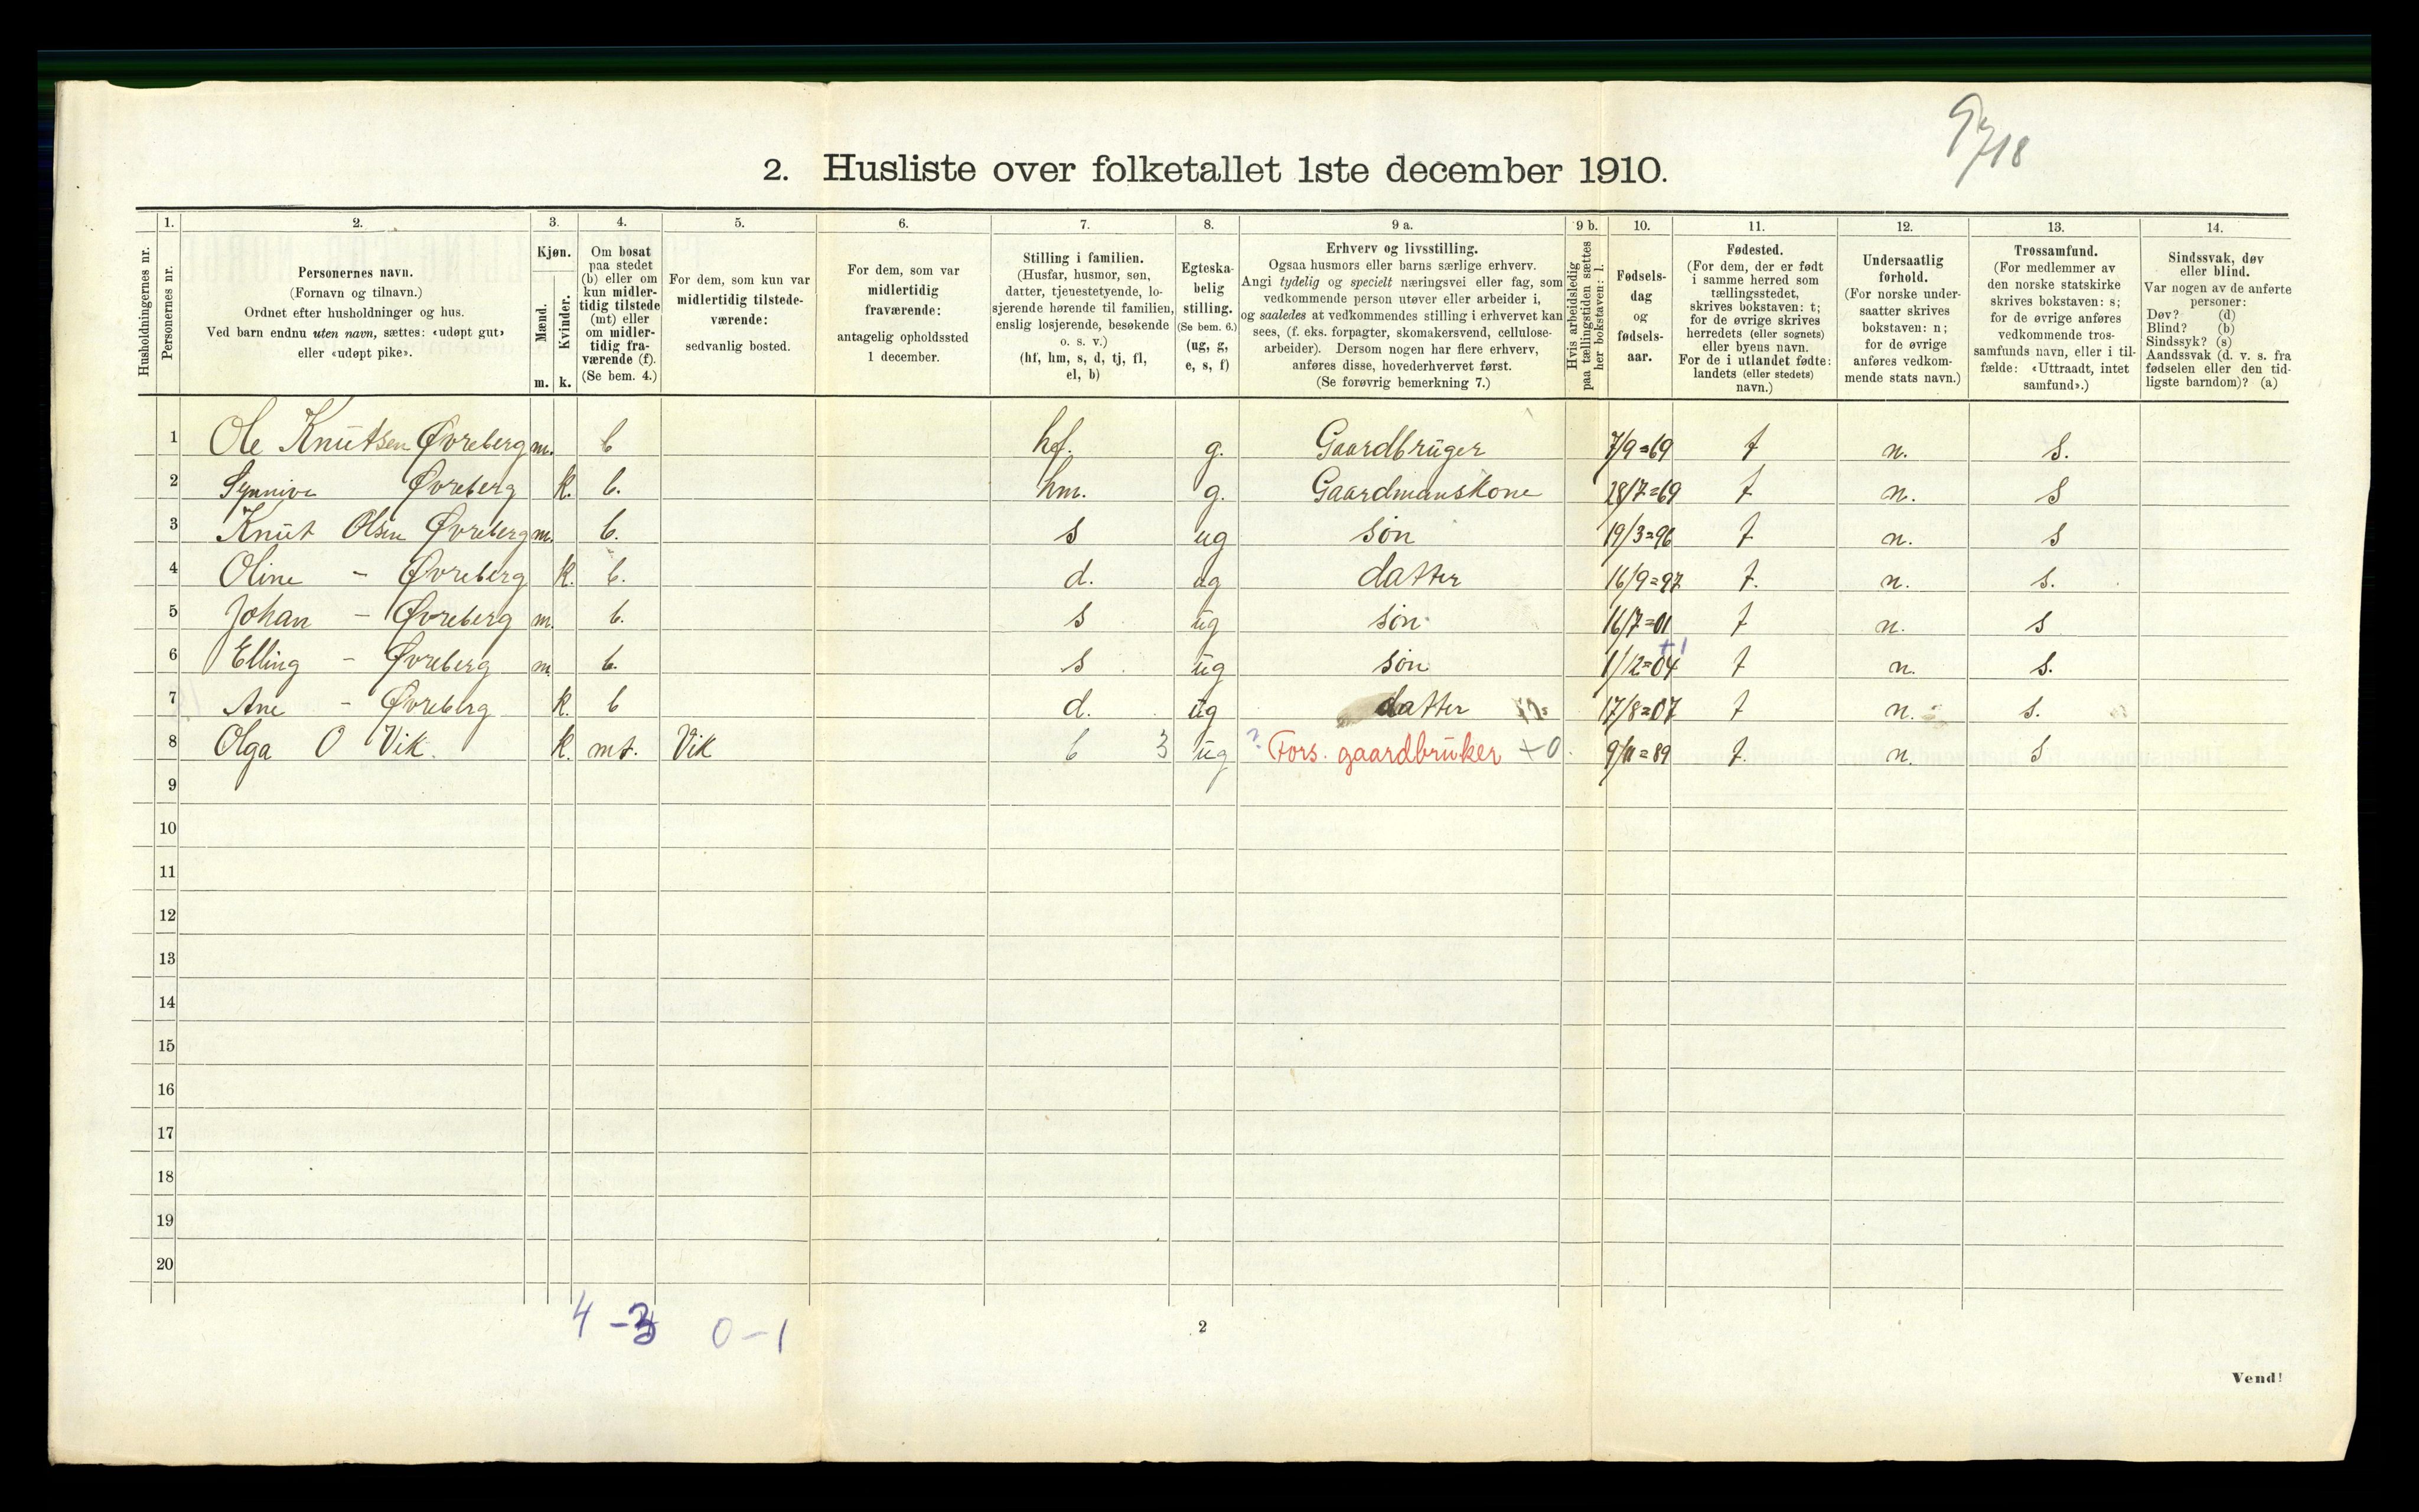 2. Husliste over folketallet 1ste december 1910.
Husholdningernes nr.
1.
Personernes nr.
2.
Personernes navn.
(Fornavn og tilnavn.)
Ordnet efter husholdninger og hus.
Ved barn endnu uten navn, sættes: «udøpt gut»
eller «udøpt pike».
3.
Kjøn.
Mænd.
Kvinder.
m. k.
4.
Om bosat
paa stedet
(b) eller om
kun midler-
tidig tilstede
(mt) eller
om midler-
tidig fra-
værende (f).
(Se bem. 4.)
5.
For dem, som kun var
midlertidig tilstede-
værende:
sedvanlig bosted.
6.
For dem, som var
midlertidig
fraværende:
antagelig opholdssted
1 december.
7.
Stilling i familien.
(Husfar, husmor, søn,
datter, tjenestetyende, lo-
sjerende hørende til familien,
enslig losjerende, besøkende
o. s. v.)
(hf, hm, s, d, tj, fl,
el, b)
8.
Egteska-
belig
stilling.
(Se bem. 6.)
(ug, g,
e, s, f)
9 a.
Erhverv og livsstilling.
Ogsaa husmors eller barns særlige erhverv.
Angi tydelig og specielt næringsvei eller fag, som
vedkommende person utøver eller arbeider i,
og saaledes at vedkommendes stilling i erhvervet kan
sees, (f. eks. forpagter, skomakersvend, cellulose-
arbeider). Dersom nogen har flere erhverv,
anføres disse, hovederhvervet først.
(Se forøvrig bemerkning 7.)
9 b.
Hvis arbeidsledig
paa tællingstiden sættes
her bokstaven: l.
10.
Fødsels-
dag
og
fødsels-
aar.
11.
Fødested.
(For dem, der er født
i samme herred som
tællingsstedet,
skrives bokstaven: t;
for de øvrige skrives
herredets (eller sognets)
eller byens navn.
For de i utlandet fødte:
landets (eller stedets)
navn.)
12.
Undersaatlig
forhold.
(For norske under-
saatter skrives
bokstaven: n;
for de øvrige
anføres vedkom-
mende stats navn.)
13.
Trossamfund.
(For medlemmer av
den norske statskirke
skrives bokstaven: s;
for de øvrige anføres
vedkommende tros-
samfunds navn, eller i til-
fælde: «Uttraadt, intet
samfund».)
14.
Sindssvak, døv
eller blind.
Var nogen av de anførte
personer:
Døv? (d)
Blind? (b)
Sindssyk? (s)
Aandssvak (d. v. s. fra
fødselen eller den tid-
ligste barndom)? (a)
1 Ole Knutsen Øvreberg m. b hf. g. Gaardbruger 7/9=69 t n. s.
2 Synnive Øvreberg k. b. hm. g. Gaardmanskone 28/7=69 t n. s
3 Knut Olsen Øvreberg m. b. s ug søn 19/3=96 t n. s
4 Oline – Øvreberg k. b. d. ug datter 16/9=97 t. n. s.
5 Johan – Øvreberg m. b. s ug søn 16/7=01 t n. s
+1
6 Elling – Øvreberg m. b. s ug søn 1/12=04 t n. s.
7 Ane – Øvreberg k. b d. ug datter 17/8=07 t n. s.
8 Olga O Vik. k. mt. Vik b 3 ug ? Fors. gaardbruker +0. 9/11=89 t. n. s
9
10
11
12
13
14
15
16
17
18
19
20
4 – 3 0 – 1
2
Vend!